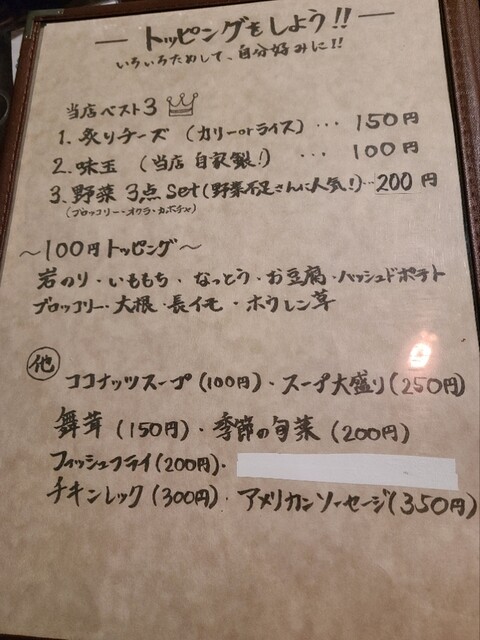 ― トッピングをしよう!! ―
いろいろためして、自分好みに!!
当店ベスト3
1. 炙りチーズ (カリーorライス) … 150円
2. 味玉 (当店自家製!) … 100円
3. 野菜3点set(野菜不足さんに人気!)…200円
(ブロッコリー・オクラ・カボチャ)
～100円トッピング～
岩のり・いももち・なっとう・お豆腐・ハッシュドポテト
ブロッコリー・大根・長イモ・ホウレン草
他 ココナッツスープ(100円)・スープ大盛り(250円)
舞茸(150円)・季節の旬菜(200円)
フィッシュフライ(200円)・
チキンレッグ(300円)・アメリカンソーセージ(350円)